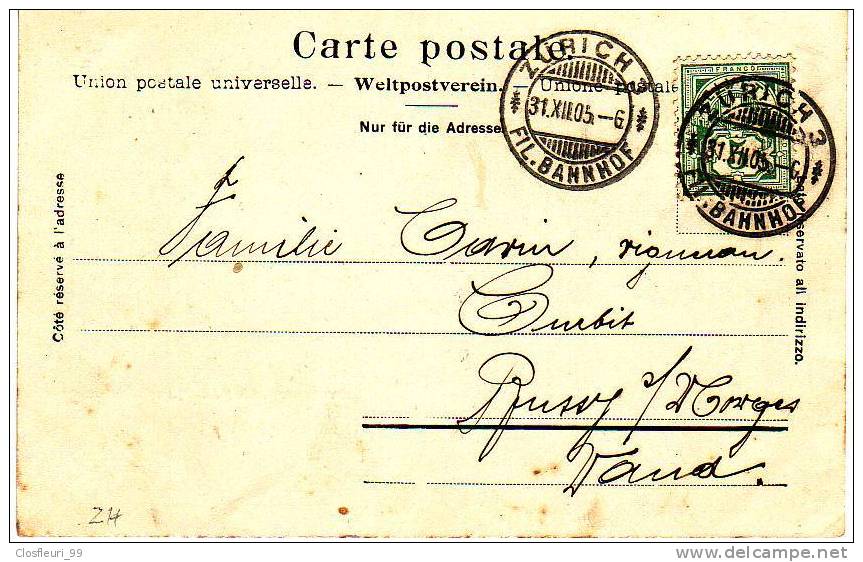 Carte postale
Union postale universelle. — Weltpostverein. — Unione postale
Nur für die Adresse
ZÜRICH 3
31.XII.05.–6
FIL. BAHNHOF
FRANCO
ZÜRICH 3
31.XII.05.–6
FIL. BAHNHOF
Côté réservé à l'adresse
riservato all indirizzo.
Familie Cavin, vigneron.
Curbit
Bussy s/Morges
Vaud.
ZH
Closfleuri_99
www.delcampe.net